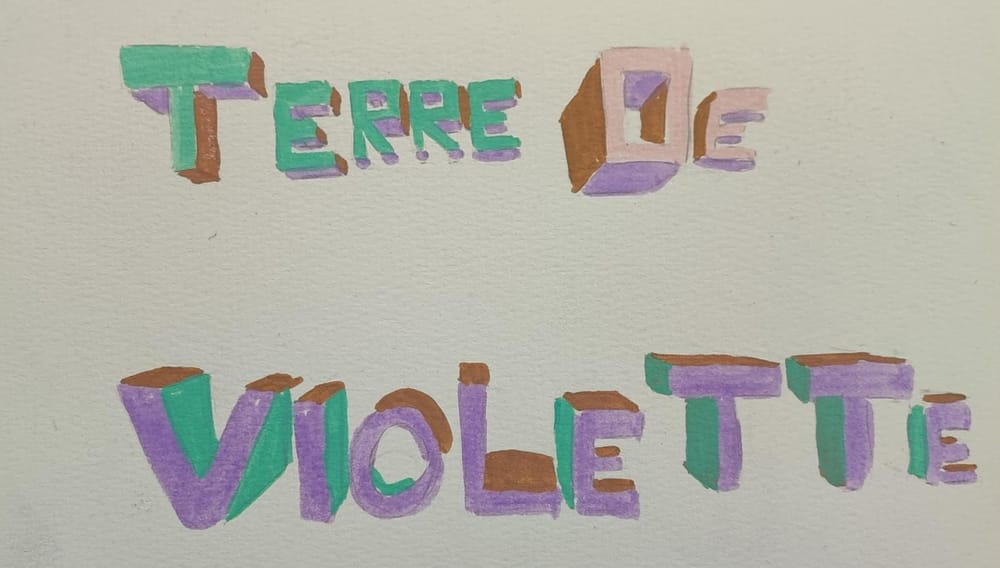 TERRE DE
VIOLETTE